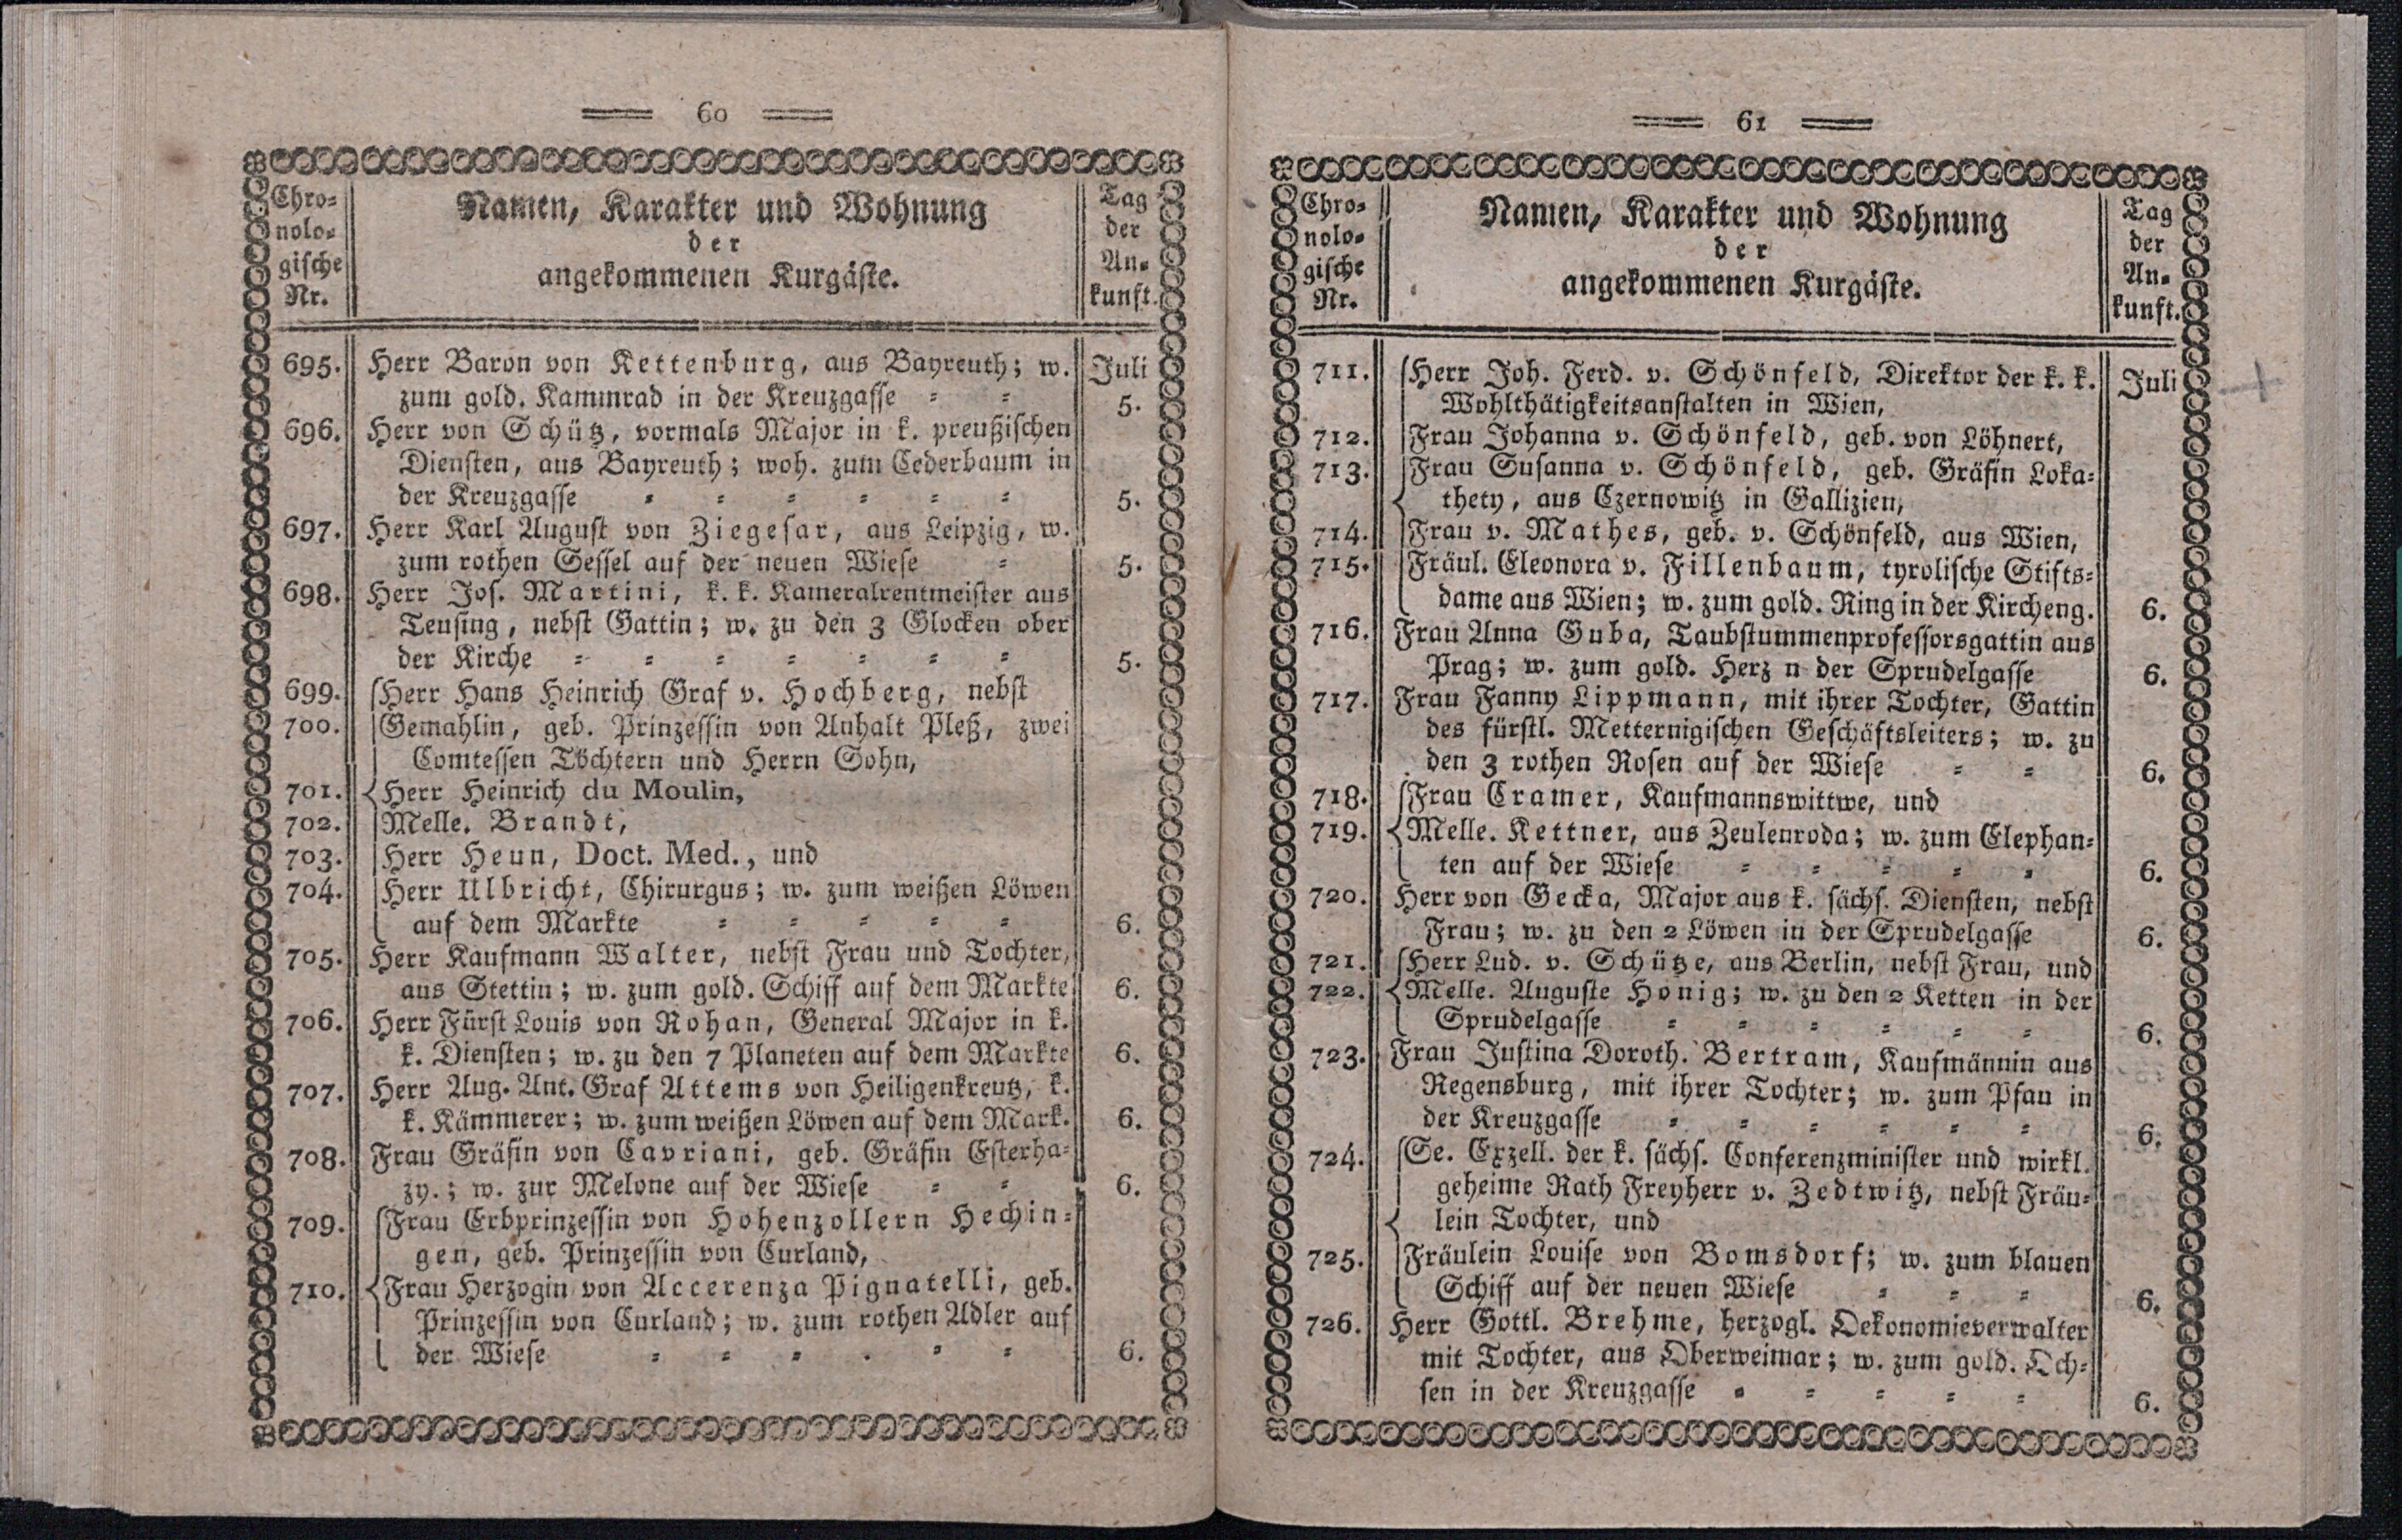 60
Chro-
nolo-
gische
Nr.
Namen, Karakter und Wohnung
der
angekommenen Kurgäste.
Tag
der
An-
kunft.
695. Herr Baron von Kettenburg, aus Bayreuth; w. Juli
zum gold. Kammrad in der Kreuzgasse = = 5.
696. Herr von Schütz, vormals Major in k. preußischen
Diensten, aus Bayreuth; woh. zum Cederbaum in
der Kreuzgasse = = = = = = 5.
697. Herr Karl August von Ziegesar, aus Leipzig, w.
zum rothen Sessel auf der neuen Wiese = 5.
698. Herr Jos. Martini, k. k. Kameralrentmeister aus
Teusing, nebst Gattin; w. zu den 3 Glocken ober
der Kirche = = = = = = = 5.
699. Herr Hans Heinrich Graf v. Hochberg, nebst
700. Gemahlin, geb. Prinzessin von Anhalt Pleß, zwei
Comtessen Töchtern und Herrn Sohn,
701. Herr Heinrich du Moulin,
702. Melle. Brandt,
703. Herr Heun, Doct. Med., und
704. Herr Ulbricht, Chirurgus; w. zum weißen Löwen
auf dem Markte = = = = = 6.
705. Herr Kaufmann Walter, nebst Frau und Tochter,
aus Stettin; w. zum gold. Schiff auf dem Markte 6.
706. Herr Fürst Louis von Rohan, General Major in k.
k. Diensten; w. zu den 7 Planeten auf dem Markte 6.
707. Herr Aug. Ant. Graf Attems von Heiligenkreutz, k.
k. Kämmerer; w. zum weißen Löwen auf dem Mark. 6.
708. Frau Gräfin von Cavriani, geb. Gräfin Esterha-
zy.; w. zur Melone auf der Wiese = = 6.
709. Frau Erbprinzessin von Hohenzollern Hechin-
gen, geb. Prinzessin von Curland,
710. Frau Herzogin von Accerenza Pignatelli, geb.
Prinzessin von Curland; w. zum rothen Adler auf
der Wiese = = = . = = 6.
61
Chro-
nolo-
gische
Nr.
Namen, Karakter und Wohnung
der
angekommenen Kurgäste.
Tag
der
An-
kunft.
711. Herr Joh. Ferd. v. Schönfeld, Direktor der k. k. Juli
Wohlthätigkeitsanstalten in Wien,
712. Frau Johanna v. Schönfeld, geb. von Löhnert,
713. Frau Susanna v. Schönfeld, geb. Gräfin Loka-
thety, aus Czernowitz in Gallizien,
714. Frau v. Mathes, geb. v. Schönfeld, aus Wien,
715. Fräul. Eleonora v. Fillenbaum, tyrolische Stifts-
dame aus Wien; w. zum gold. Ring in der Kircheng. 6.
716. Frau Anna Guba, Taubstummenprofessorsgattin aus
Prag; w. zum gold. Herz n der Sprudelgasse 6.
717. Frau Fanny Lippmann, mit ihrer Tochter, Gattin
des fürstl. Metternigischen Geschäftsleiters; w. zu
den 3 rothen Rosen auf der Wiese = = 6.
718. Frau Cramer, Kaufmannswittwe, und
719. Melle. Kettner, aus Zeulenroda; w. zum Elephan-
ten auf der Wiese = = = = = 6.
720. Herr von Gecka, Major aus k. sächs. Diensten, nebst
Frau; w. zu den 2 Löwen in der Sprudelgasse 6.
721. Herr Lud. v. Schütze, aus Berlin, nebst Frau, und
722. Melle. Auguste Honig; w. zu den 2 Ketten in der
Sprudelgasse = = = = = = 6.
723. Frau Justina Doroth. Bertram, Kaufmännin aus
Regensburg, mit ihrer Tochter; w. zum Pfau in
der Kreuzgasse = = = = = = 6.
724. Se. Exzell. der k. sächs. Conferenzminister und wirkl.
geheime Rath Freyherr v. Zedtwitz, nebst Fräu-
lein Tochter, und
725. Fräulein Louise von Bomsdorf; w. zum blauen
Schiff auf der neuen Wiese = = = 6.
726. Herr Gottl. Brehme, herzogl. Oekonomieverwalter
mit Tochter, aus Oberweimar; w. zum gold. Och-
sen in der Kreuzgasse = = = = = 6.